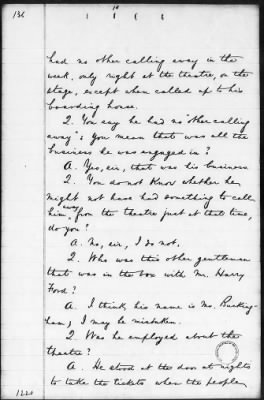 136
had no other calling away in the
week, only right at the theatre, on the
stage, except when called up to his
boarding house.
Q. You say he had no "other calling
away"; you mean that was all the
business he was engaged in?
A. Yes, sir, that was his business
Q. You do not know whether he
might not have had something to call
away
him from the theatre just at that time,
do you?
A. No, sir, I do not.
Q. Who was this other gentleman
that was in the box with Mr. Harry
Ford?
A. I think his name is Mr. Bucking-
ham; I may be mistaken.
Q. Was he employed about the
theatre?
A. He stood at the door at nights
to take the tickets when the people
1220